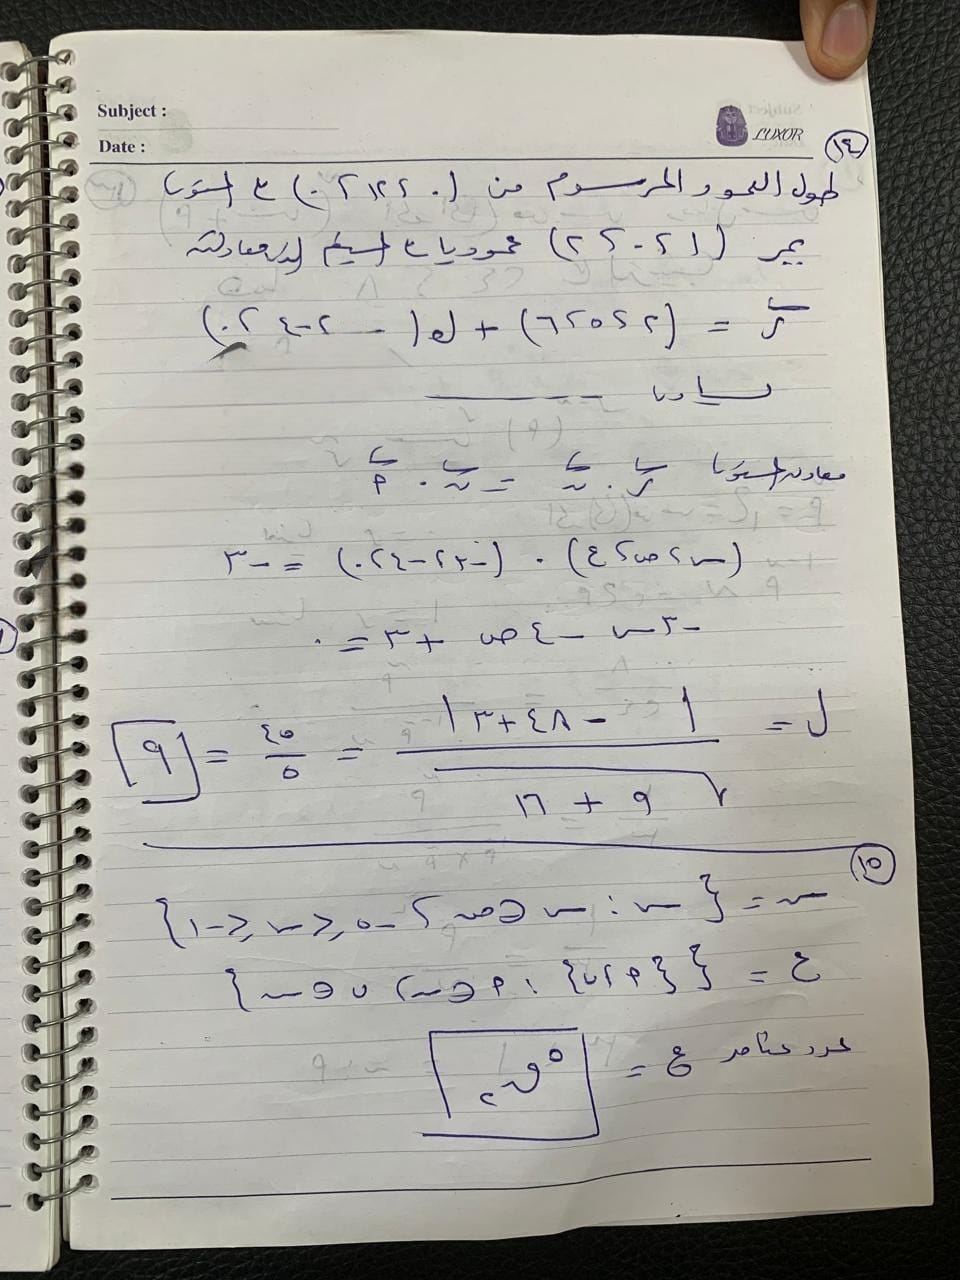 Subject :
Date :
LUXOR
١٤
طول العمود المرسوم من (٠ ، ١٢ ، ٠) على المستوى
يمر (١ ، ٠ ، ٢) عمودياً على المستقيم الذى معادلته
ر = (٢ ، ٥ ، ٦) + ك (-٣ ، -٤ ، ٠)
يساوى
معادلة المستوى ر . ن = ن . م
(س ، ص ، ع) . (-٣ ، -٤ ، ٠) = -٣
-٣س - ٤ص + ٣ = ٠
ل = | -٤٨ + ٣ | / √(٩ + ١٦) = ٤٥ / ٥ = ٩
١٥
س = {س : س ∈ ص ، -٥ ≤ س ≤ -١}
ع = {{م ، ن} : م ∈ س ، ن ∈ س}
عدد عناصر ع = ٥ق٢